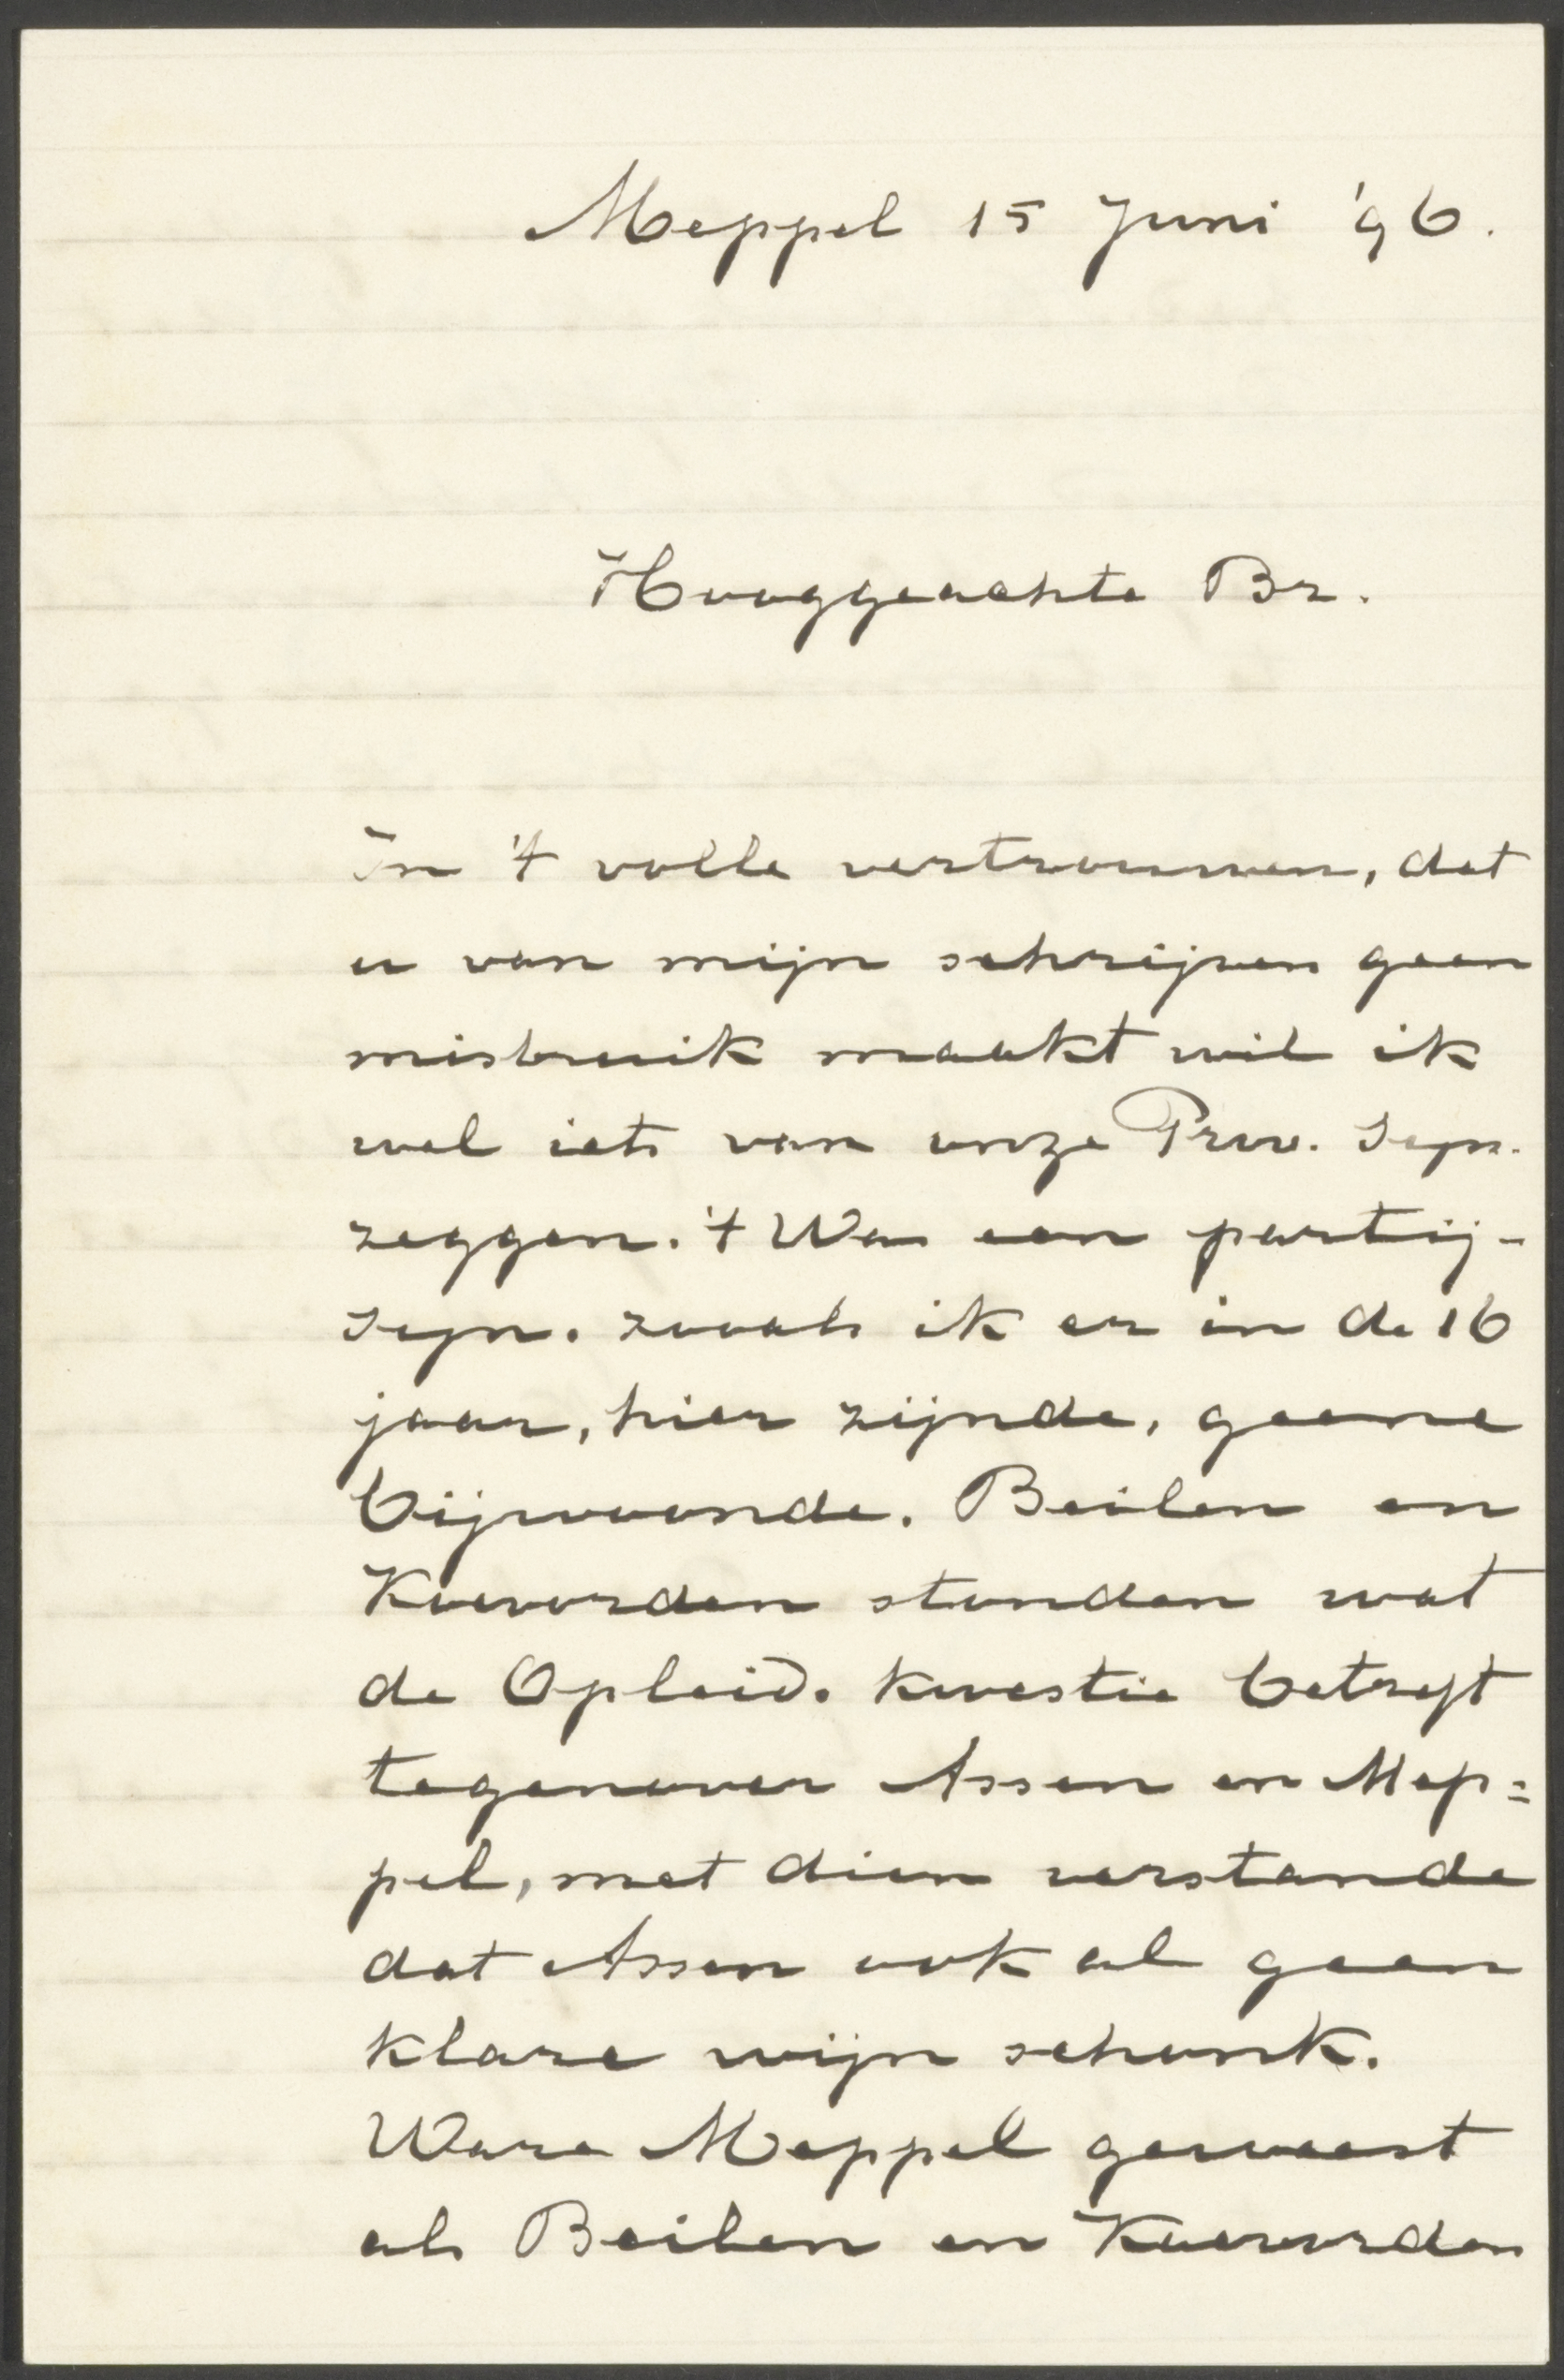 Meppel 15 Juni '96.
Hooggeachte Br.
In 't volle vertrouwen, dat
u van mijn schrijven geen
misbruik maakt wil ik
wel iets van onze Prov. Syn.
zeggen. 't Was een partij-
syn. zooals ik er in de 16
jaar, hier zijnde, geene
bijwoonde. Beilen en
Koevorden stonden wat
de Opleid. kwestie betreft
tegenover Assen en Mep=
pel, met dien verstande
dat Assen ook al geen
klare wijn schonk.
Ware Meppel geweest
als Beilen en Koevorden